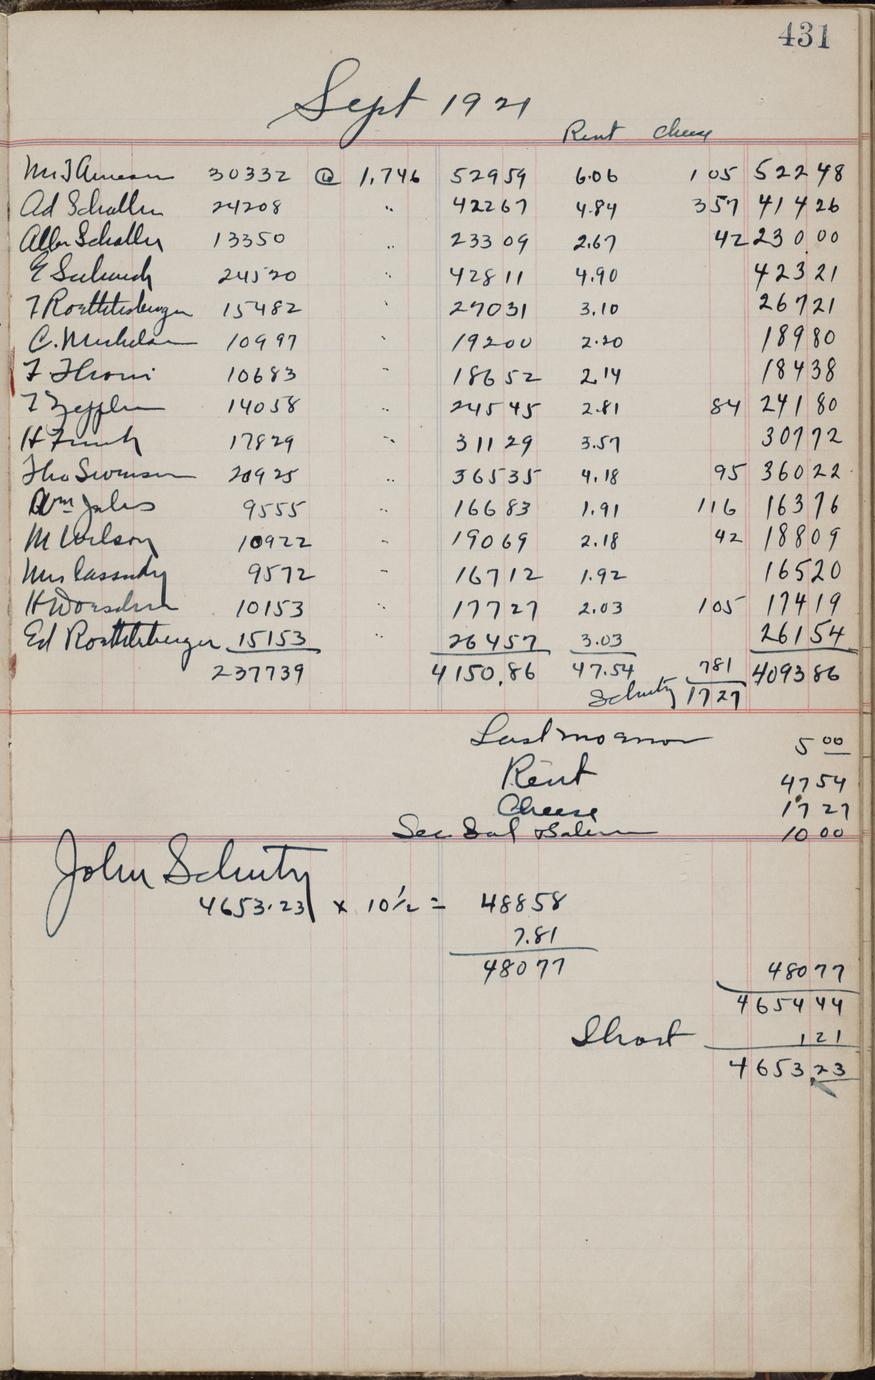 431
Sept 1921
Rent Cheese
30332 @ 1,746 52959 6.06 105 52248
Ad Schaller 24208 " 42267 4.84 357 41426
Schaller 13350 " 23309 2.67 42 23000
E 24520 " 42811 4.90 42321
F Roethlisberger 15482 " 27031 3.10 26721
C. 10997 " 19200 2.20 18980
F 10683 " 18652 2.14 18438
14058 " 24545 2.81 84 24180
H 17829 " 31129 3.57 30772
Tho Swenson 20925 " 36535 4.18 95 36022
Wm Jules 9555 " 16683 1.91 116 16376
M Wilson 10922 " 19069 2.18 42 18809
Mrs Cassidy 9572 " 16712 1.92 16520
H 10153 " 17727 2.03 105 17419
Ed Roethlisberger 15153 " 26457 3.03 26154
237739 4150.86 47.54 781 409386
Schutz 1727
Last mo error 5 00
Rent 4754
Cheese 1727
Sec Sal 1000
John Schutz
4653.23 x 10 1/2 = 48858
7.81
48077 48077
465444
Short 121
465323